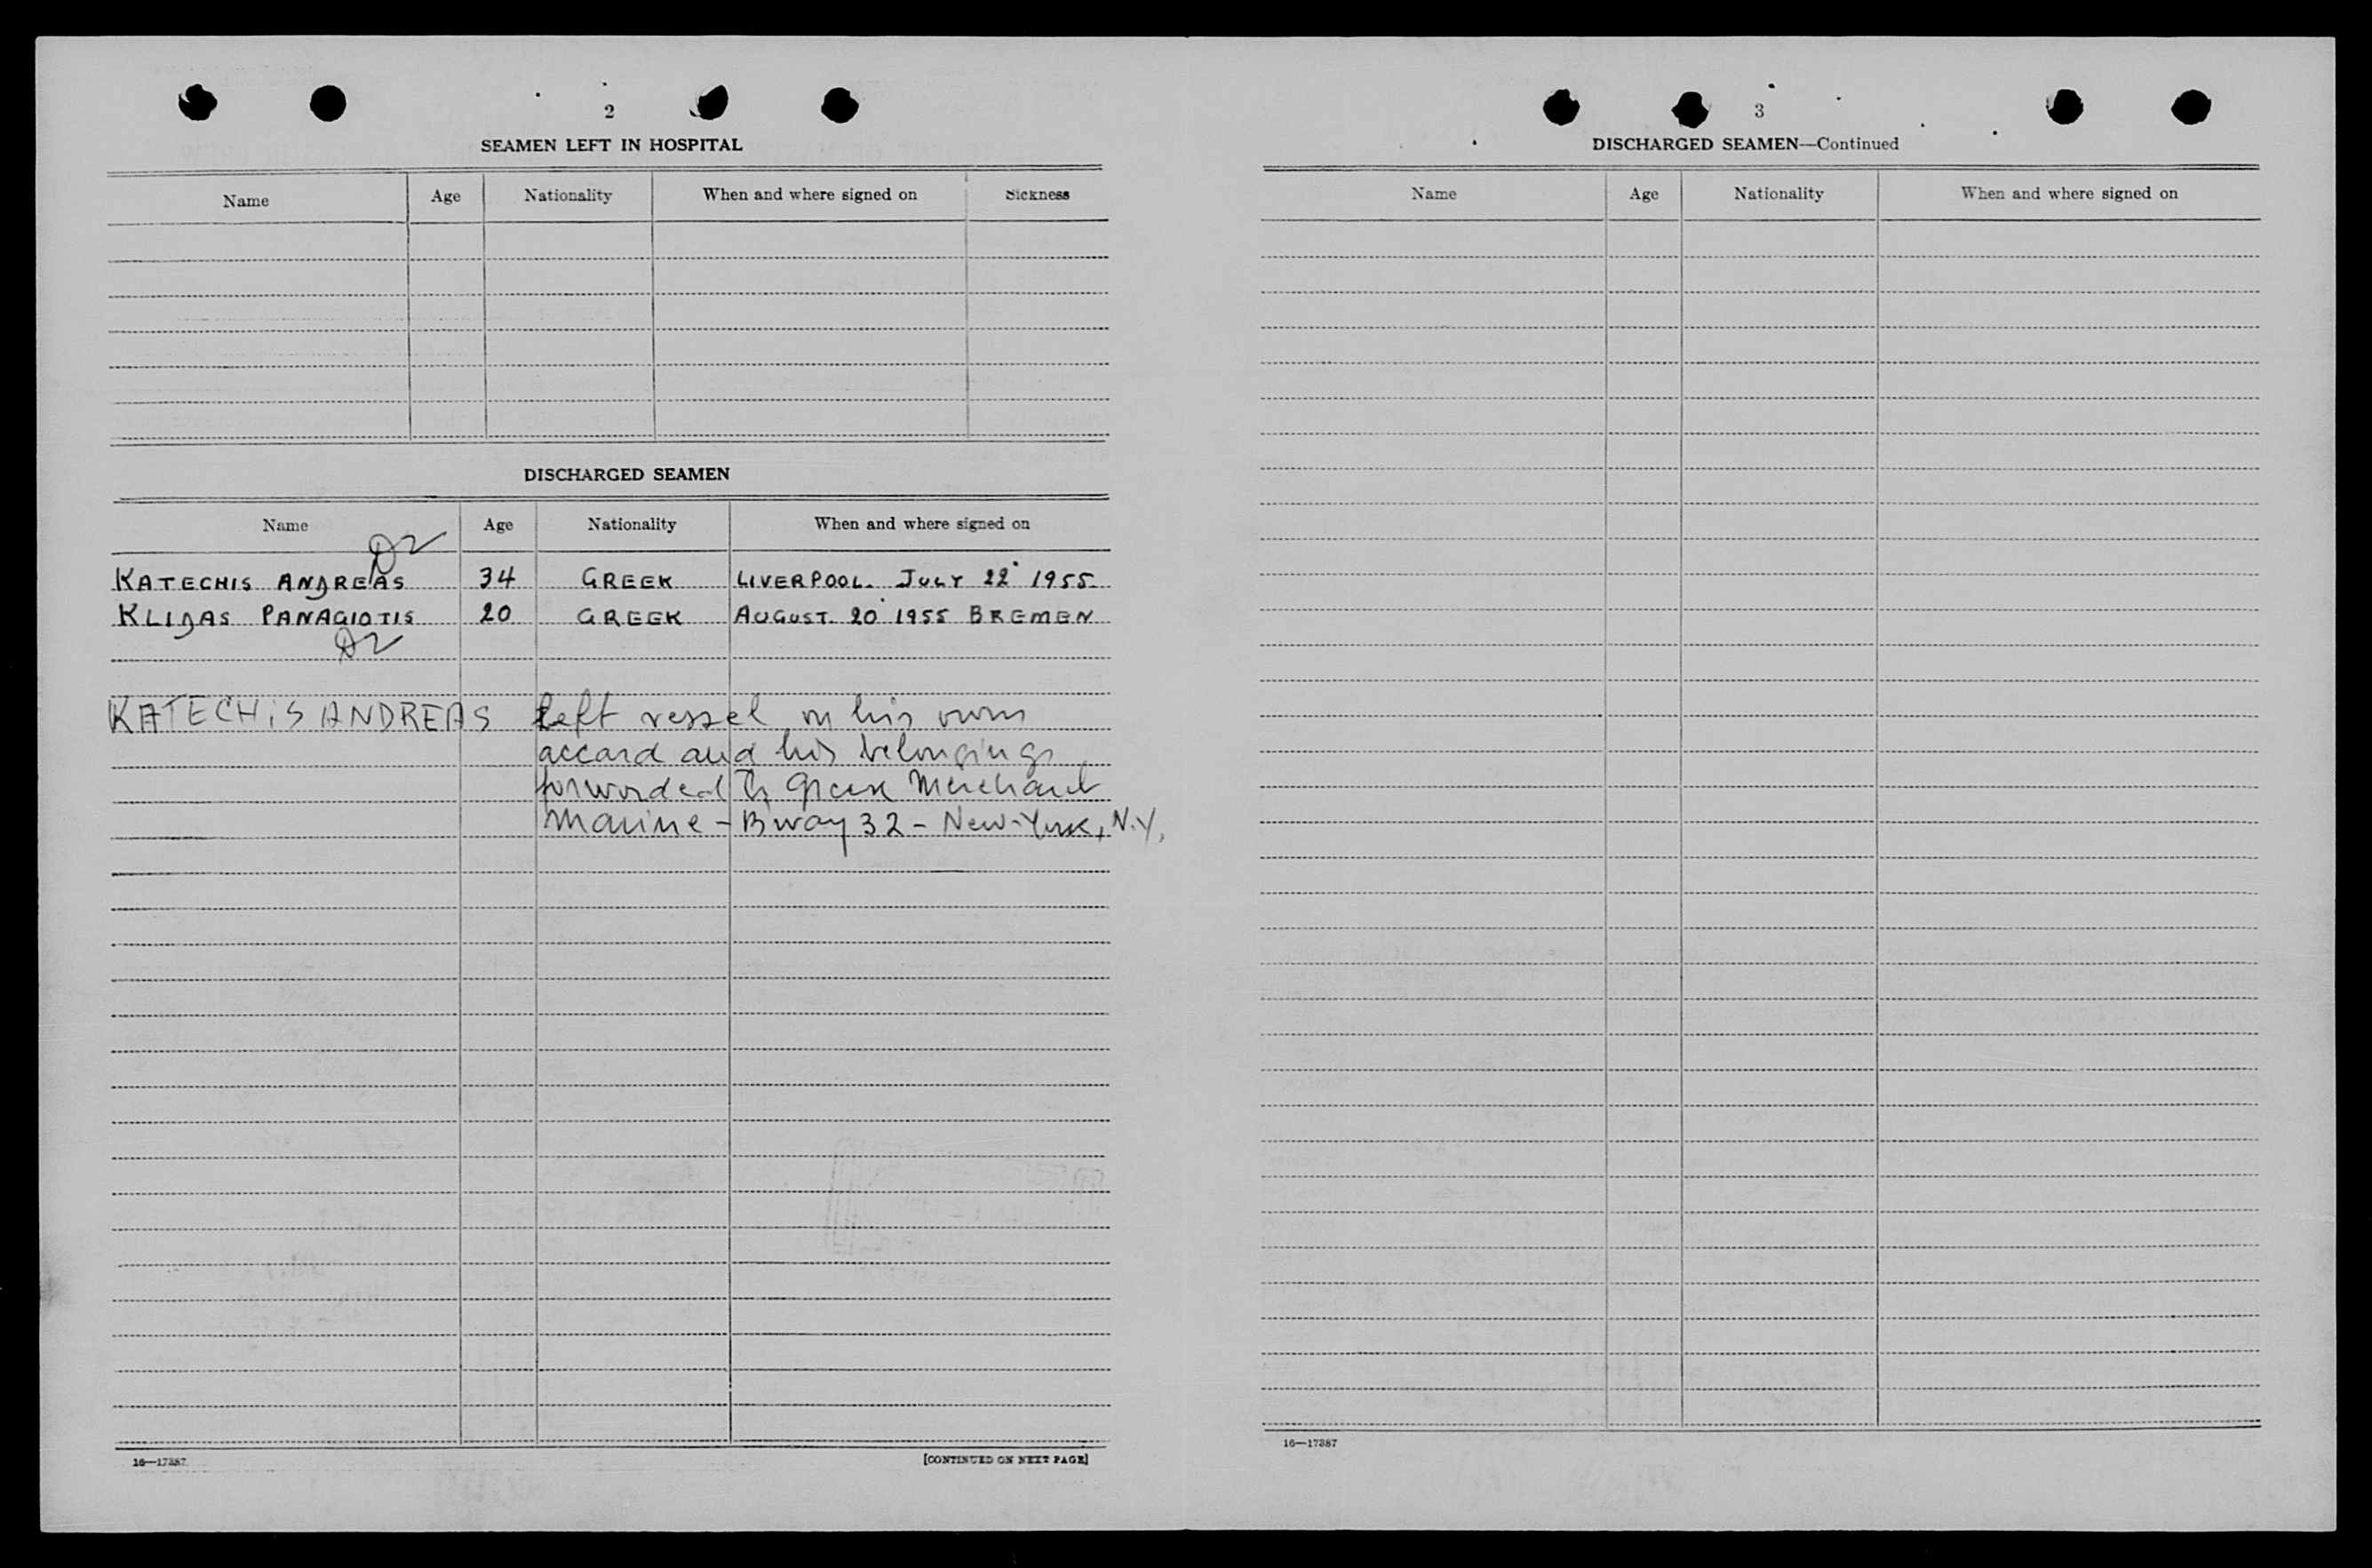 2
SEAMEN LEFT IN HOSPITAL
Name Age Nationality When and where signed on Sickness
DISCHARGED SEAMEN
Name Age Nationality When and where signed on
D2
KATECHIS ANDREAS 34 GREEK LIVERPOOL. JULY 22 1955
KLIDAS PANAGIOTIS 20 GREEK AUGUST. 20 1955 BREMEN
D2
KATECHiS ANDREAS left vessel on his own
accord and his belongings
forworded To Greek Merchant
Marine - Bway 32 - New-York, N.Y.
16—17387 [CONTINUED ON NEXT PAGE]
3
DISCHARGED SEAMEN—Continued
Name Age Nationality When and where signed on
16—17387